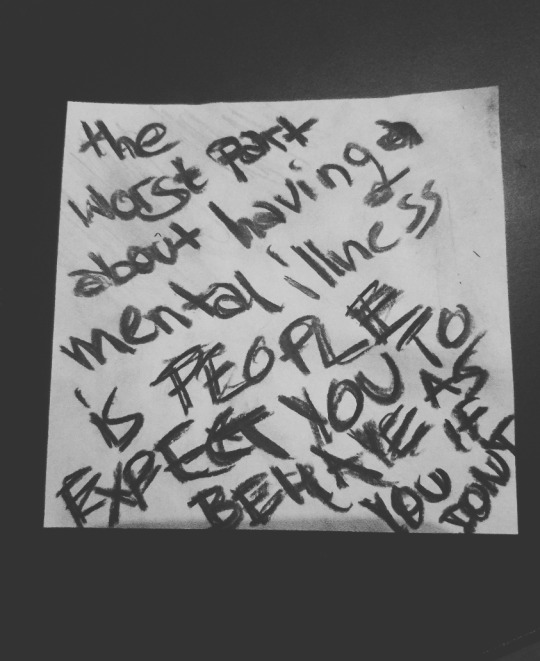 the
worst part
about having a
mental illness
is PEOPLE
EXPECT YOU TO
BEHAVE AS
YOU IF
DONT